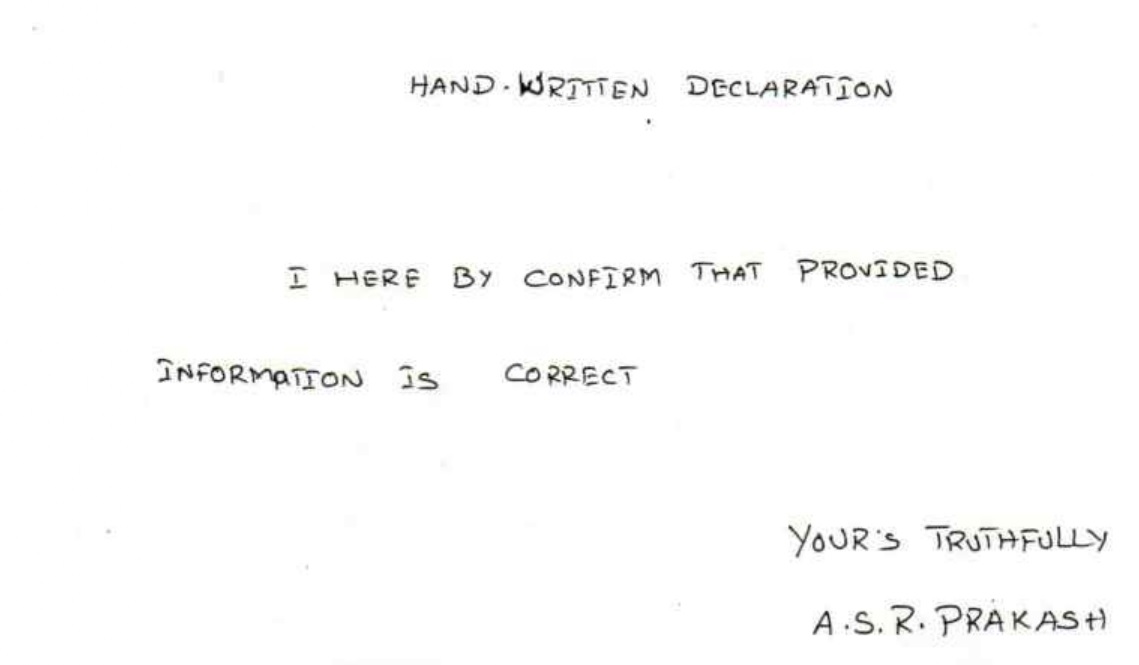 HAND-WRITTEN DECLARATION
I HERE BY CONFIRM THAT PROVIDED
INFORMATION IS CORRECT
YOUR'S TRUTHFULLY
A.S.R. PRAKASH